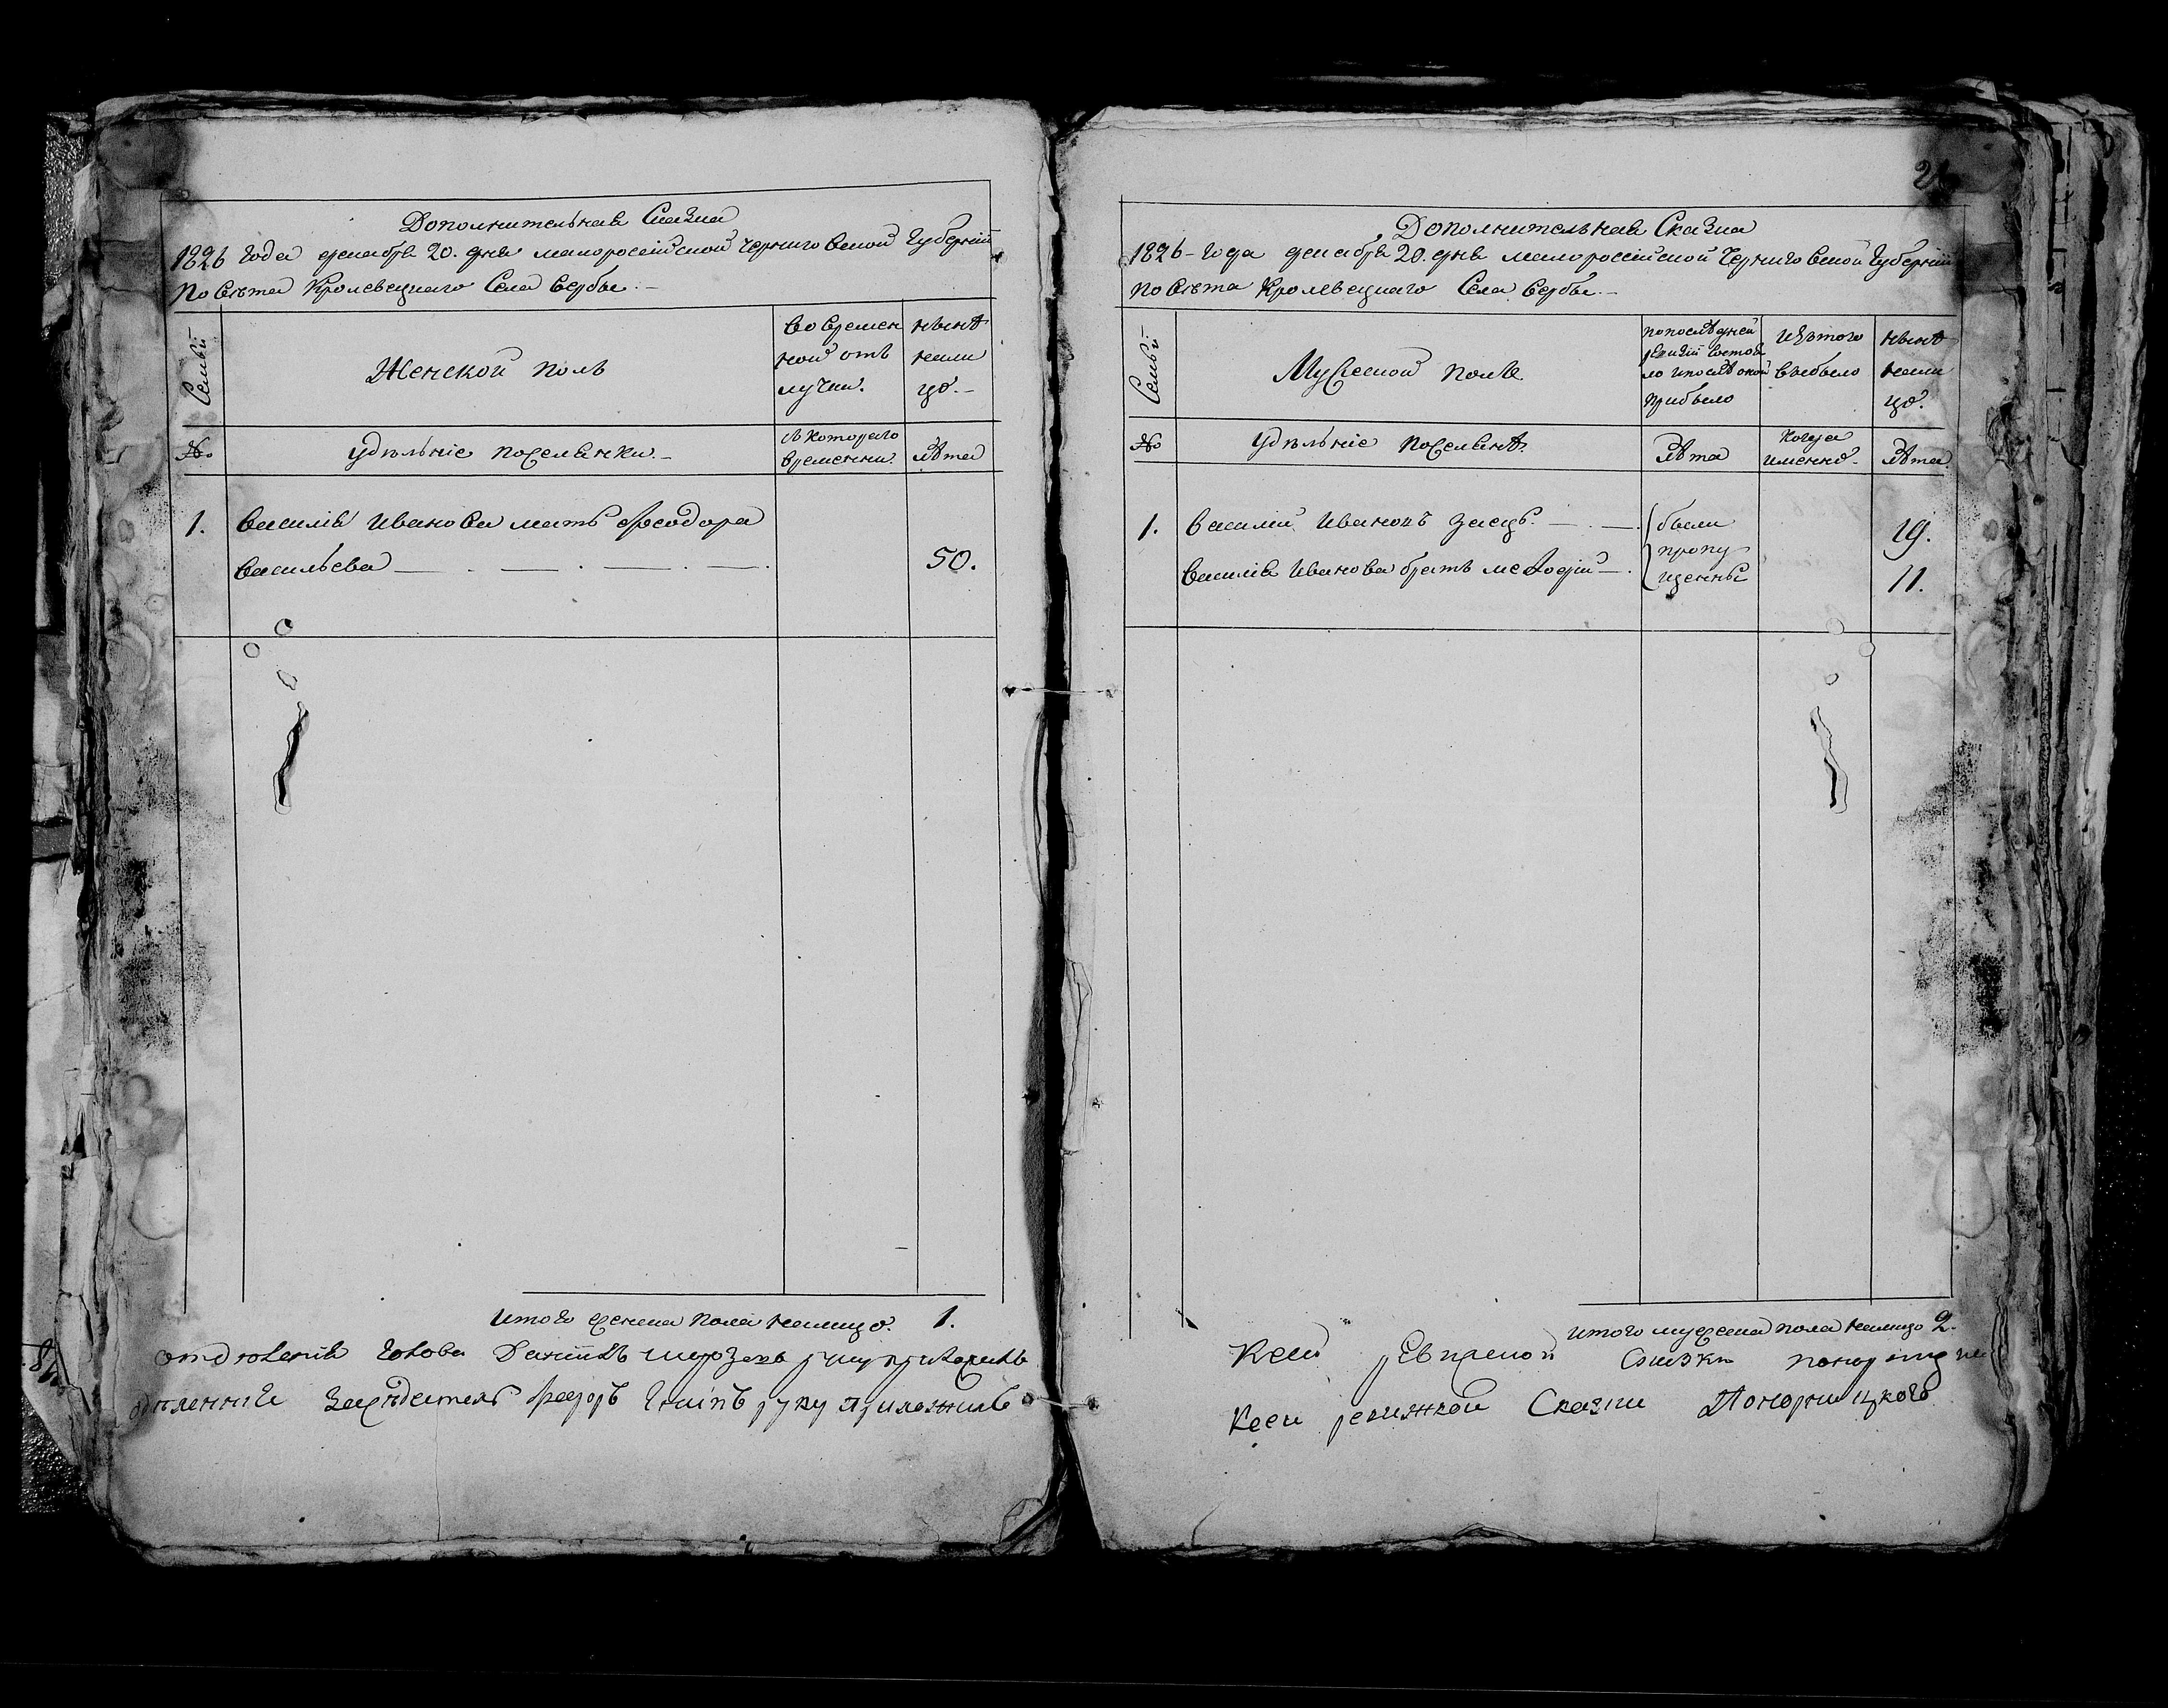 Дополнительная Сказка
1826 года декабря 20. дня малороссійской Черниговской Губерніи
Повѣта Кролевецкаго Села Вербы. –
Семьи
Женской полъ
во времен
ной отъ
лучки.
нынѣ
нали
цо. –
№
удѣльніе поселянки. –
съ котораго
временни.
Лѣта
1. Василія Иванова мать Феодора
Васильева 50.
Итого женска пола налицо. 1.
голова руку приложилъ
Засѣдатель Федоръ руку приложилъ
2
Дополнительная Сказка
1826 – года декабря 20. дня малороссійской Черниговской Губерніи
Повѣта Кролевецкаго Села Вербы. –
Семьи
Мужеской полъ
по послѣдней
ревизіи состоя
ло и послѣ оной
прибыло
Изътого
выбыло
нынѣ
нали
цо.
№
Удѣльніе Поселянѣ.
Лѣта
Когда
именно.
Лѣта
1. Василій Ивановъ Заецъ. были 19.
Василія Иванова братъ Меѳодій пропу
щенны 11.
Итого мужеска пола налицо 2.
Ксей Сказки
Ксей ревижкой Сказки Понорницкого